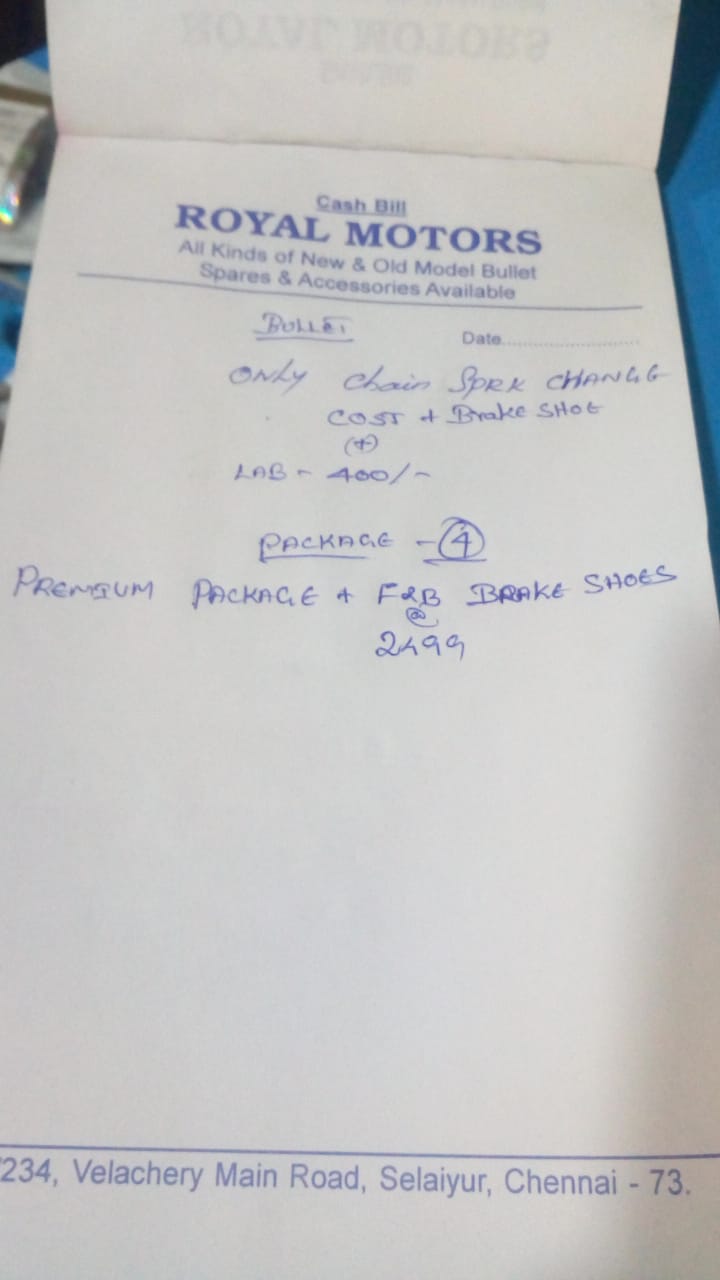 ROYAL MOTORS
Cash Bill
ROYAL MOTORS
All Kinds of New & Old Model Bullet
Spares & Accessories Available
BULLET
Date............................
ONLY Chain SPRK CHANGE
COST + Brake SHOE
(+)
LAB - 400/-
PACKAGE - 4
PREMIUM PACKAGE + F&B BRAKE SHOES
@
2499
234, Velachery Main Road, Selaiyur, Chennai - 73.